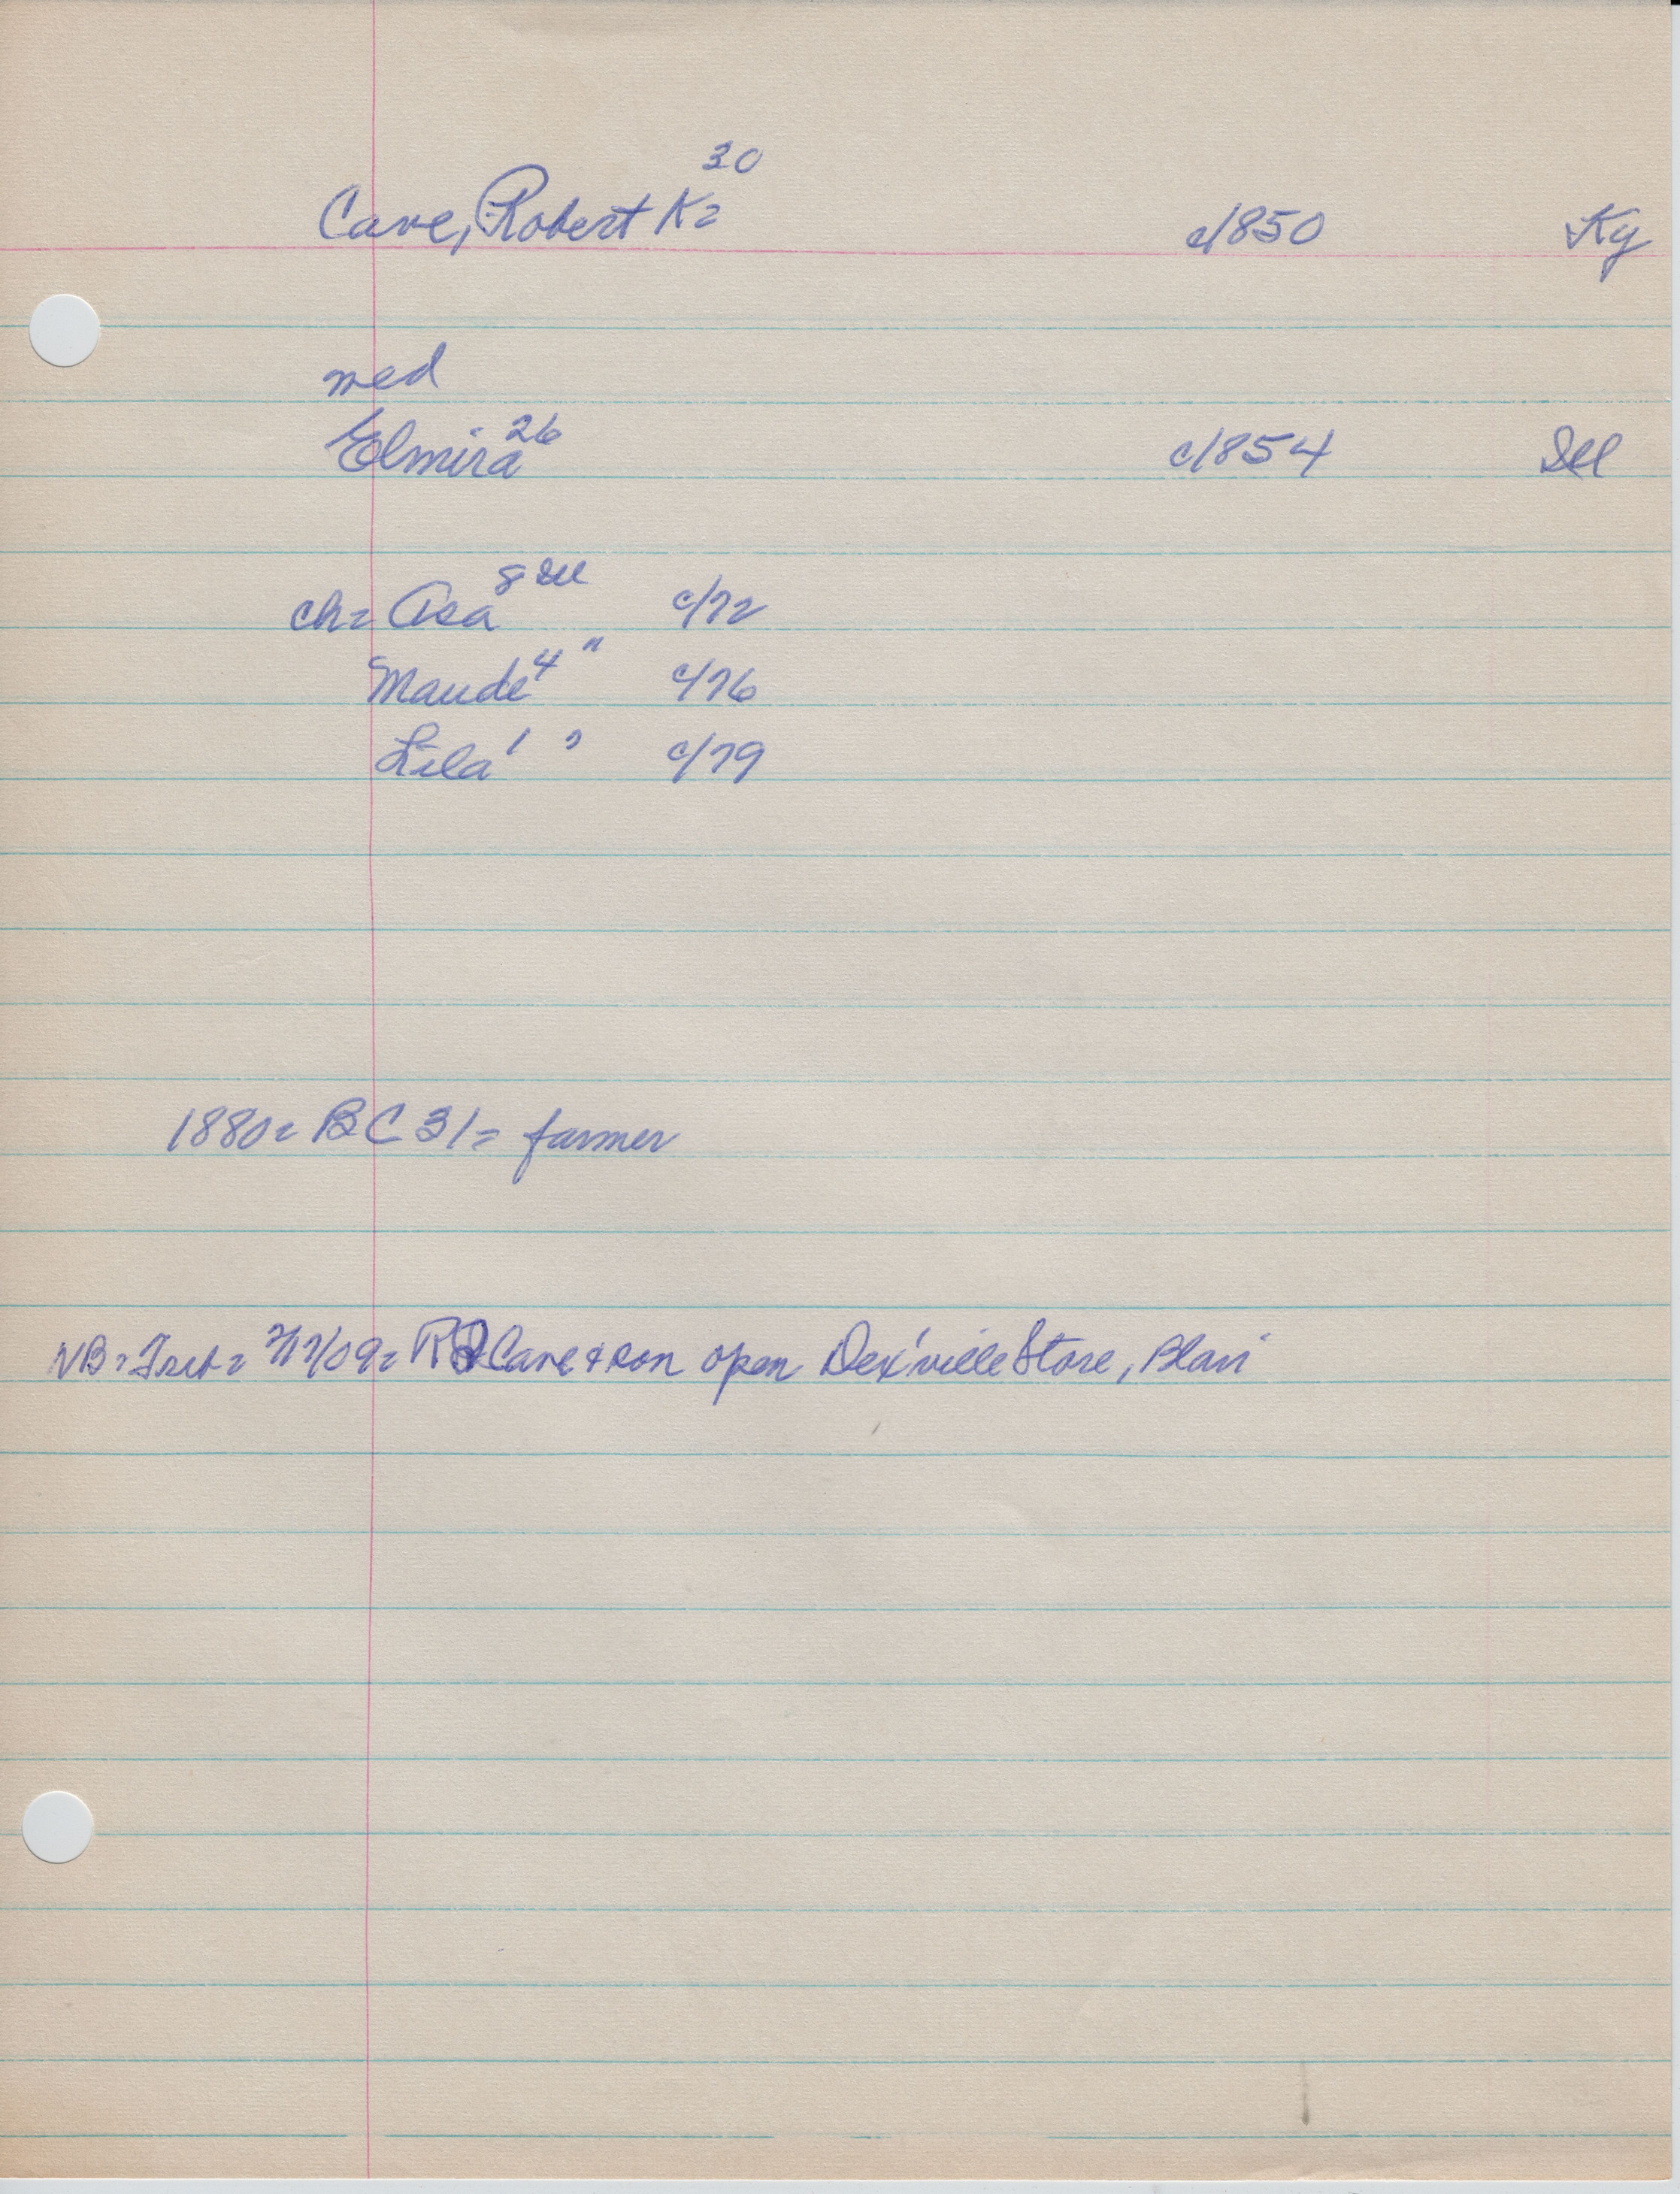 30
Cave, Robert K= c/1850 Ky
med
Elmira 26 c/1854 Ill
ch= Asa 8 Ill c/72
Maude 4 " c/76
Lila 1 " c/79
1880= BC 31= farmer
NB= Trib= /09= R Cave & son open Dex'ville Store,